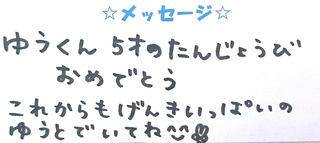 ☆メッセージ☆
ゆうくん 5才のたんじょうび
おめでとう
これからもげんきいっぱいの
ゆうとでいてね^^